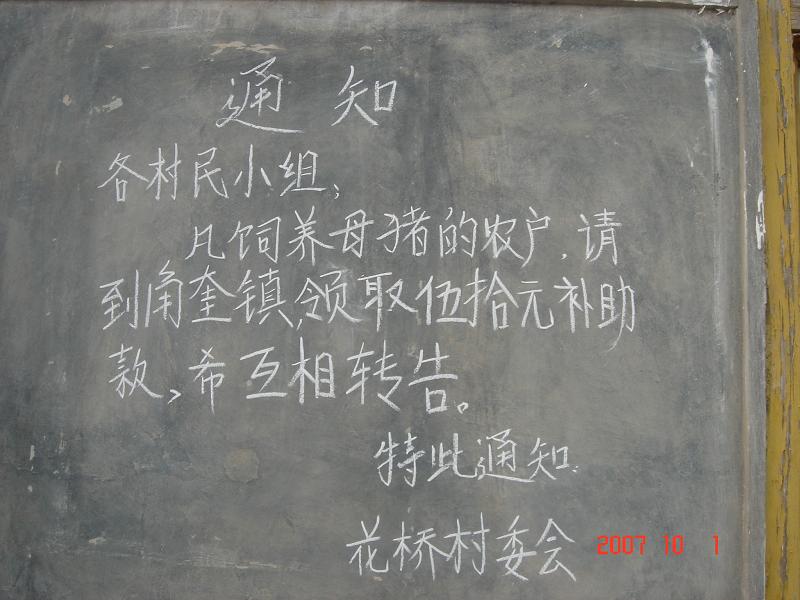 通知
各村民小组:
凡饲养母猪的农户,请
到角奎镇,领取伍拾元补助
款,希互相转告。
特此通知.
花桥村委会
2007 10 1